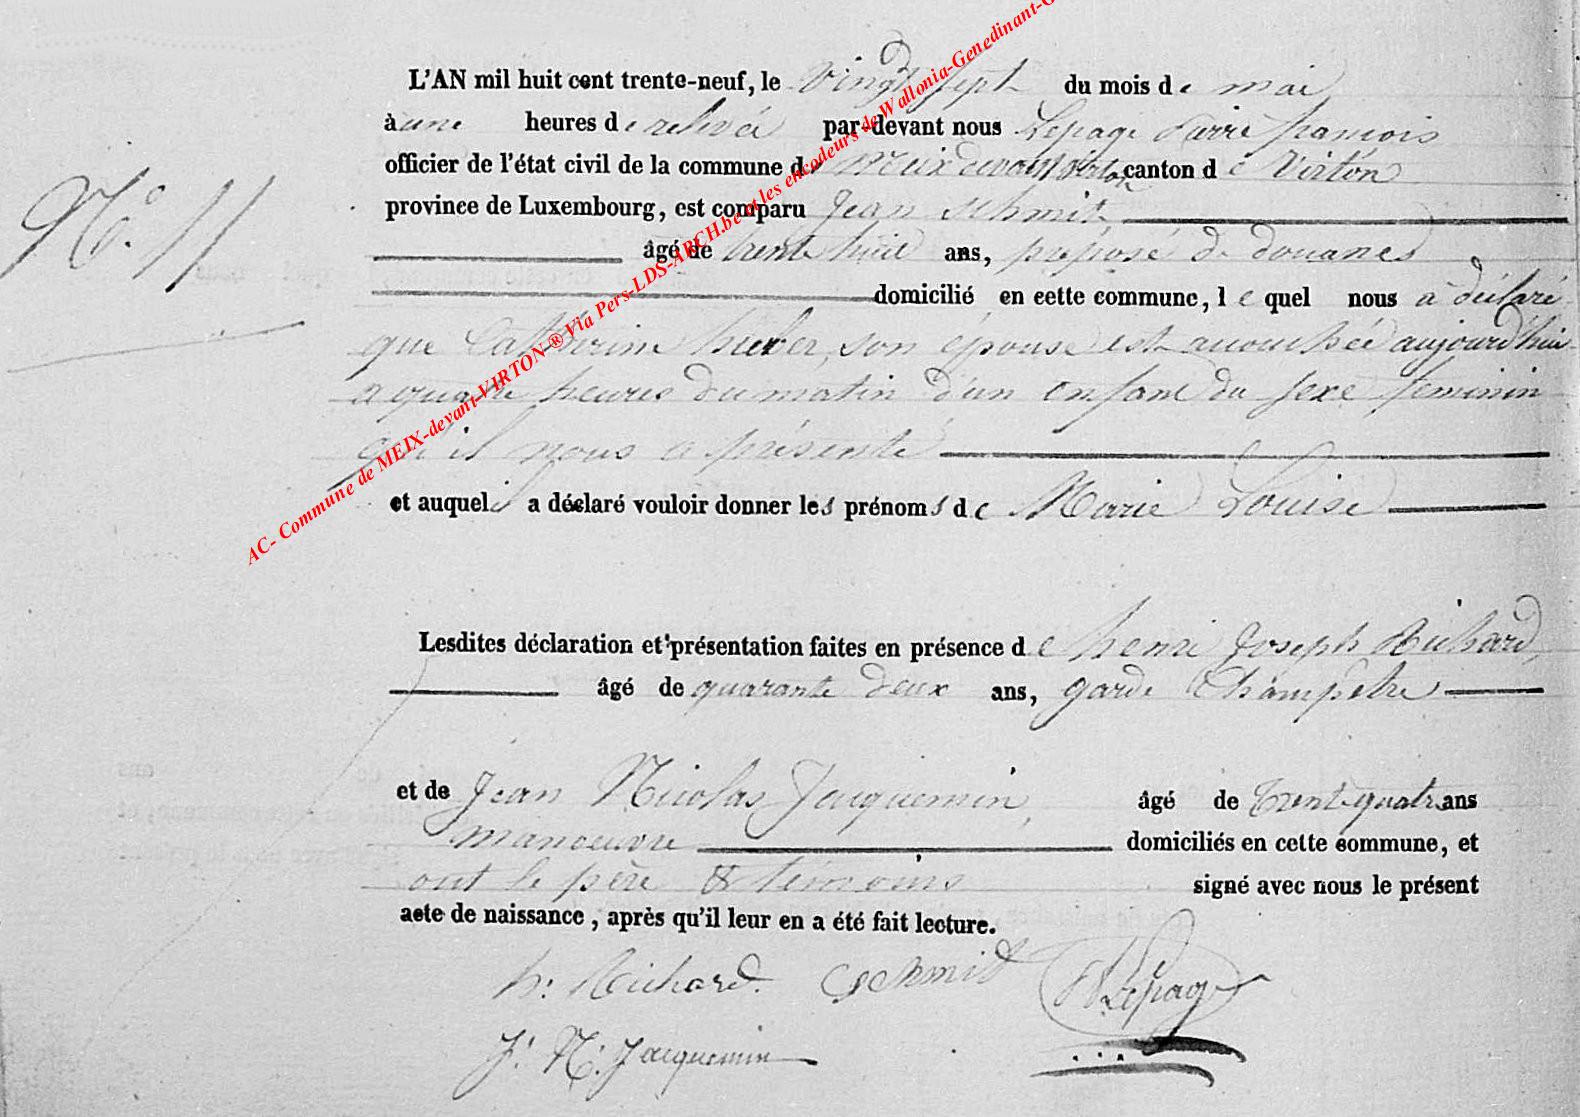 N.° 11
L'AN mil huit cent trente-neuf, le Vingt sept du mois de mai
à une heures de relevée par-devant nous Lepage Pierre françois
officier de l'état civil de la commune de Meix devant Virton canton de Virton
province de Luxembourg, est comparu Jean Schmit
âgé de trente huit ans, préposé de douanes
domicilié en cette commune, lequel nous a déclaré
que Catherine huber, son épouse est accouchée aujourd'hui
a quatre heures du matin d'un enfant du sexe feminin
qu'il nous a présenté
et auquel il a déclaré vouloir donner les prénoms de Marie Louise
Lesdites déclaration et présentation faites en présence de henri Joseph Richard,
âgé de quarante deux ans, garde Champêtre
et de Jean Nicolas Jacquemin, âgé de trente quatre ans
manoeuvre domiciliés en cette commune, et
ont le père & témoins signé avec nous le présent
acte de naissance, après qu'il leur en a été fait lecture.
h: Richard. Schmit Lepage
J: N: Jacquemin
AC- Commune de MEIX-devant-VIRTON ® Via Pers-LDS-ARCH.be et les encodeurs de Wallonia-Genedinant-G